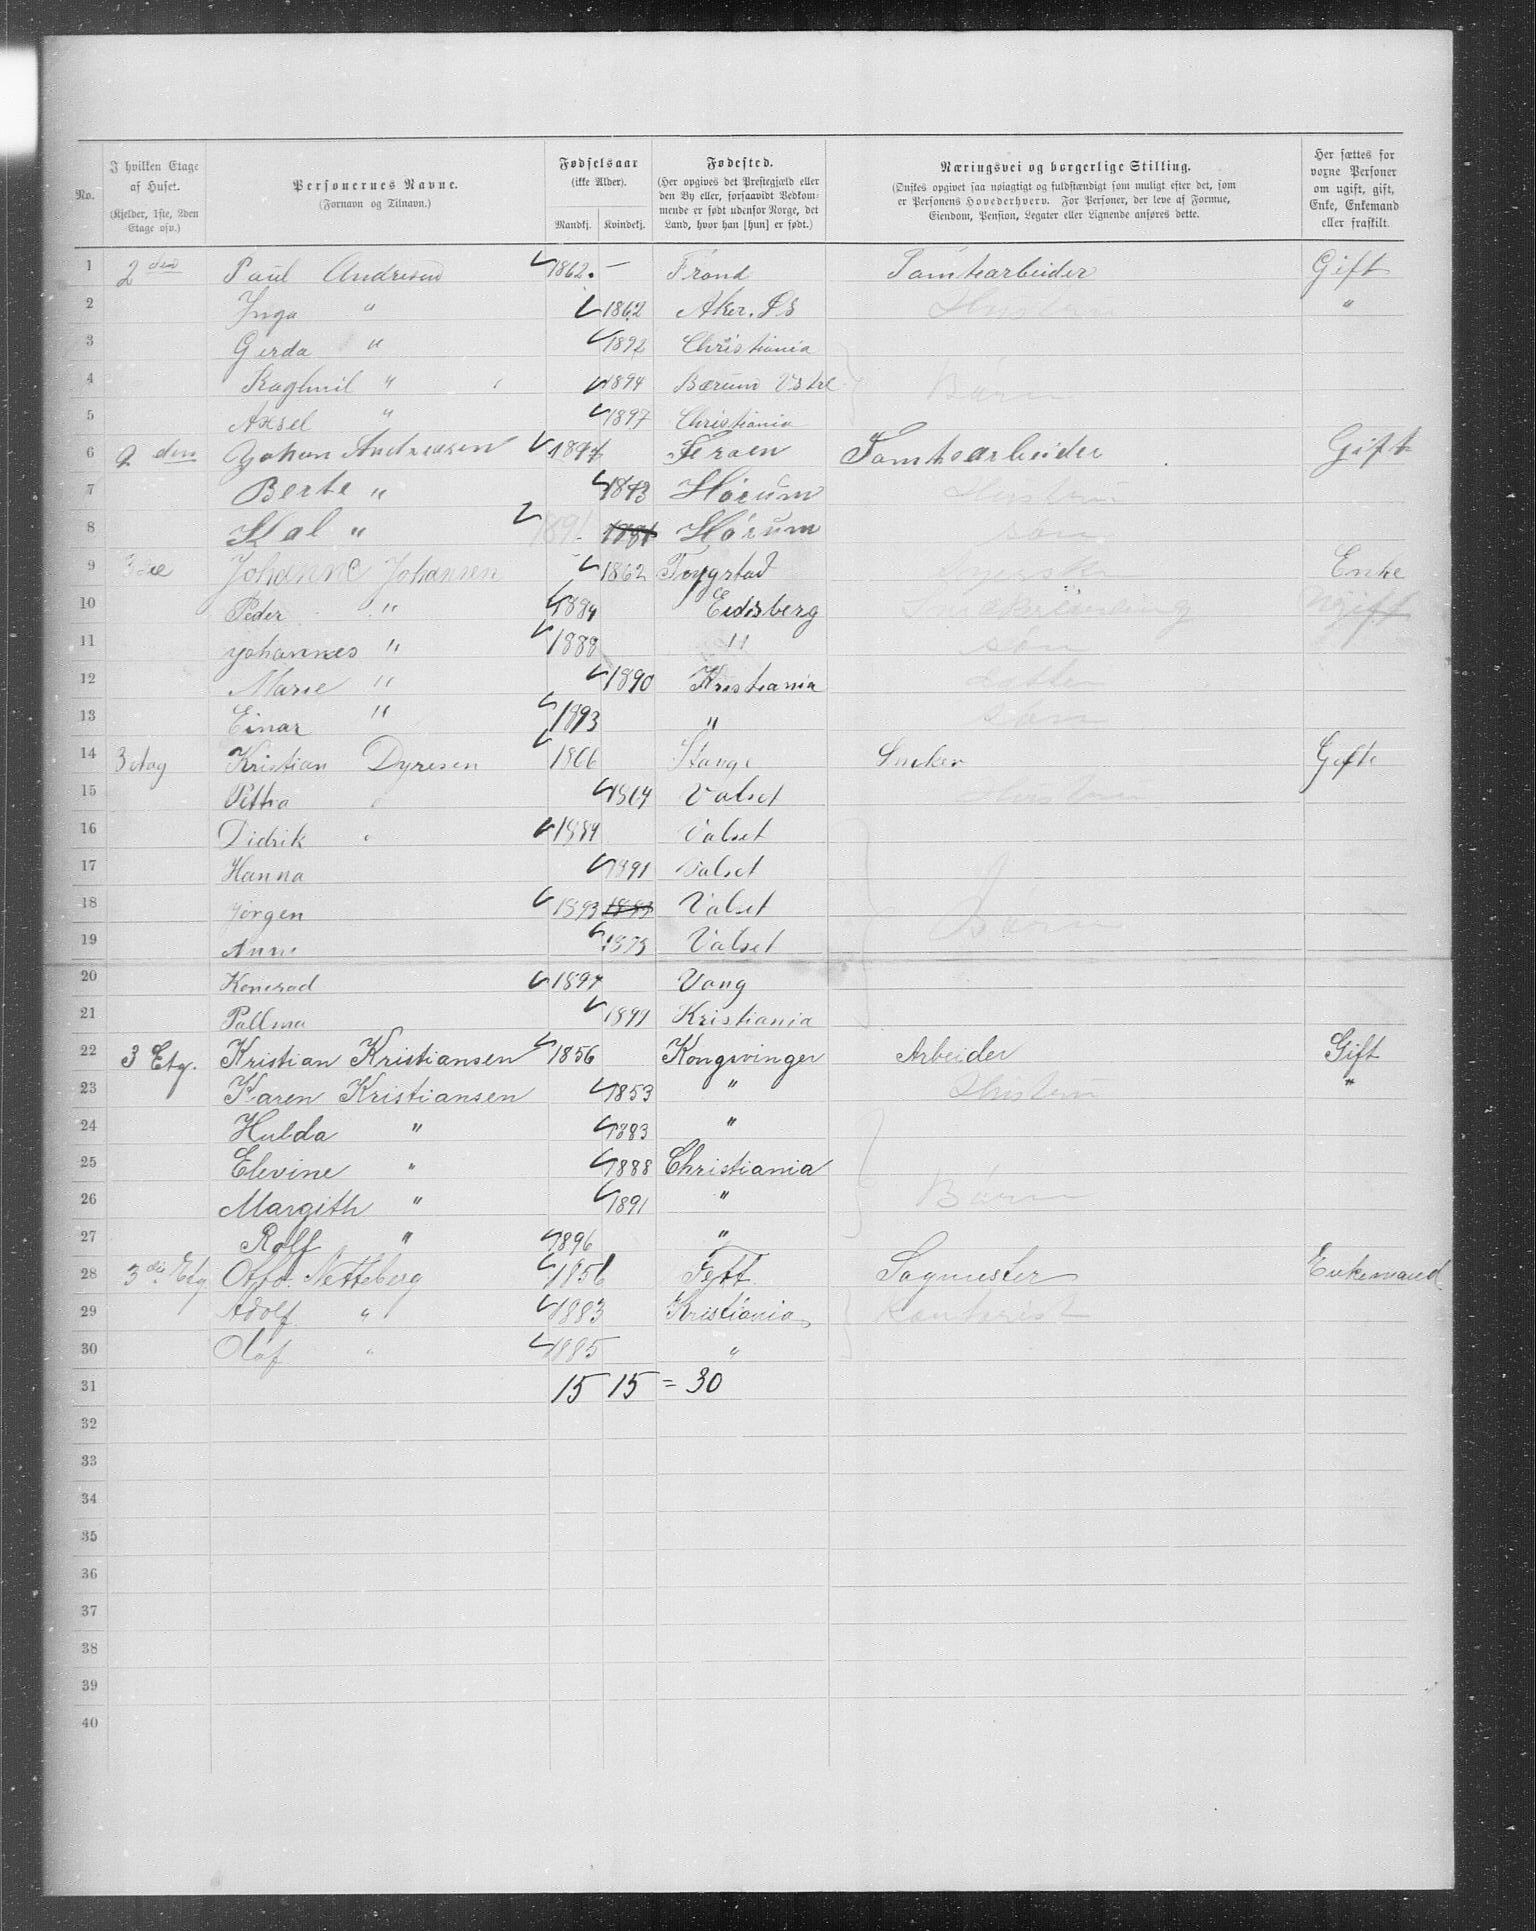 No.
I hvilken Etage af Huset.
(Kjelder, 1ste, 2den Etage osv.)
Personernes Navne.
(Fornavn og Tilnavn.)
Fødselsaar
(ikke Alder).
Mandkj. Kvindekj.
Fødested.
(Her opgives det Prestegjæld eller
den By eller, forsaavidt Vedkom-
mende er født udenfor Norge, det
Land, hvor han [hun] er født.)
Næringsvei og borgerlige Stilling.
(Ønskes opgivet saa nøiagtigt og fuldstændigt som muligt efter det, som
er Personens Hovederhverv. For Personer, der leve af Formue,
Eiendom, Pension, Legater eller Lignende anføres dette.
Her sættes for
voxne Personer
om ugift, gift,
Enke, Enkemand
eller fraskilt.
1 2den Paul Andresen 1862. — Trond Tomtearbeider Gift
2 Inga " 1862 Aker. Hustru "
3 Gerda " 1892 Christiania
4 " 1894 Bærum Børn
5 Axsel " 1897 Christiania
6 2den Johan Andreasen Tomtearbeider Gift
7 Berte " 1843 Hørum Hustru
8 " 1891 Hørum søn
9 3die Johanne Johansen 1862 Trygstad Enke
10 Peder " 1884 Eidsberg Ugift
11 Johannes " 1888 " søn
12 Marie " 1890 Kristiania datter
13 Einar " 1893 " søn
14 3 etag Kristian Dyresen 1866 Stange Sneker Gifte
15 Petra " 1864 Valset Hustru
16 Didrik " 1884 Valset
17 Hanna 1891 Valset
18 Jørgen 1893 Valset Børn
19 Anne Valset
20 Konerad 1897 Vang
21 Pallma 1899 Kristiania
22 3 Etg. Kristian Kristiansen 1856 Kongsvinger Arbeider Gift
23 Karen Kristiansen 1853 " Hustru "
24 Hulda " 1883 "
25 Elevine " 1888 Christiania
26 Margith " 1891 " Børn
27 Rolf " 1896 "
28 3die Etg Otto Netteberg 1856 Fett Sagmester Enkemand
29 Adolf " 1883 Kristiania Kontorist
30 Olaf " 1885 "
31 15 15 = 30
32
33
34
35
36
37
38
39
40